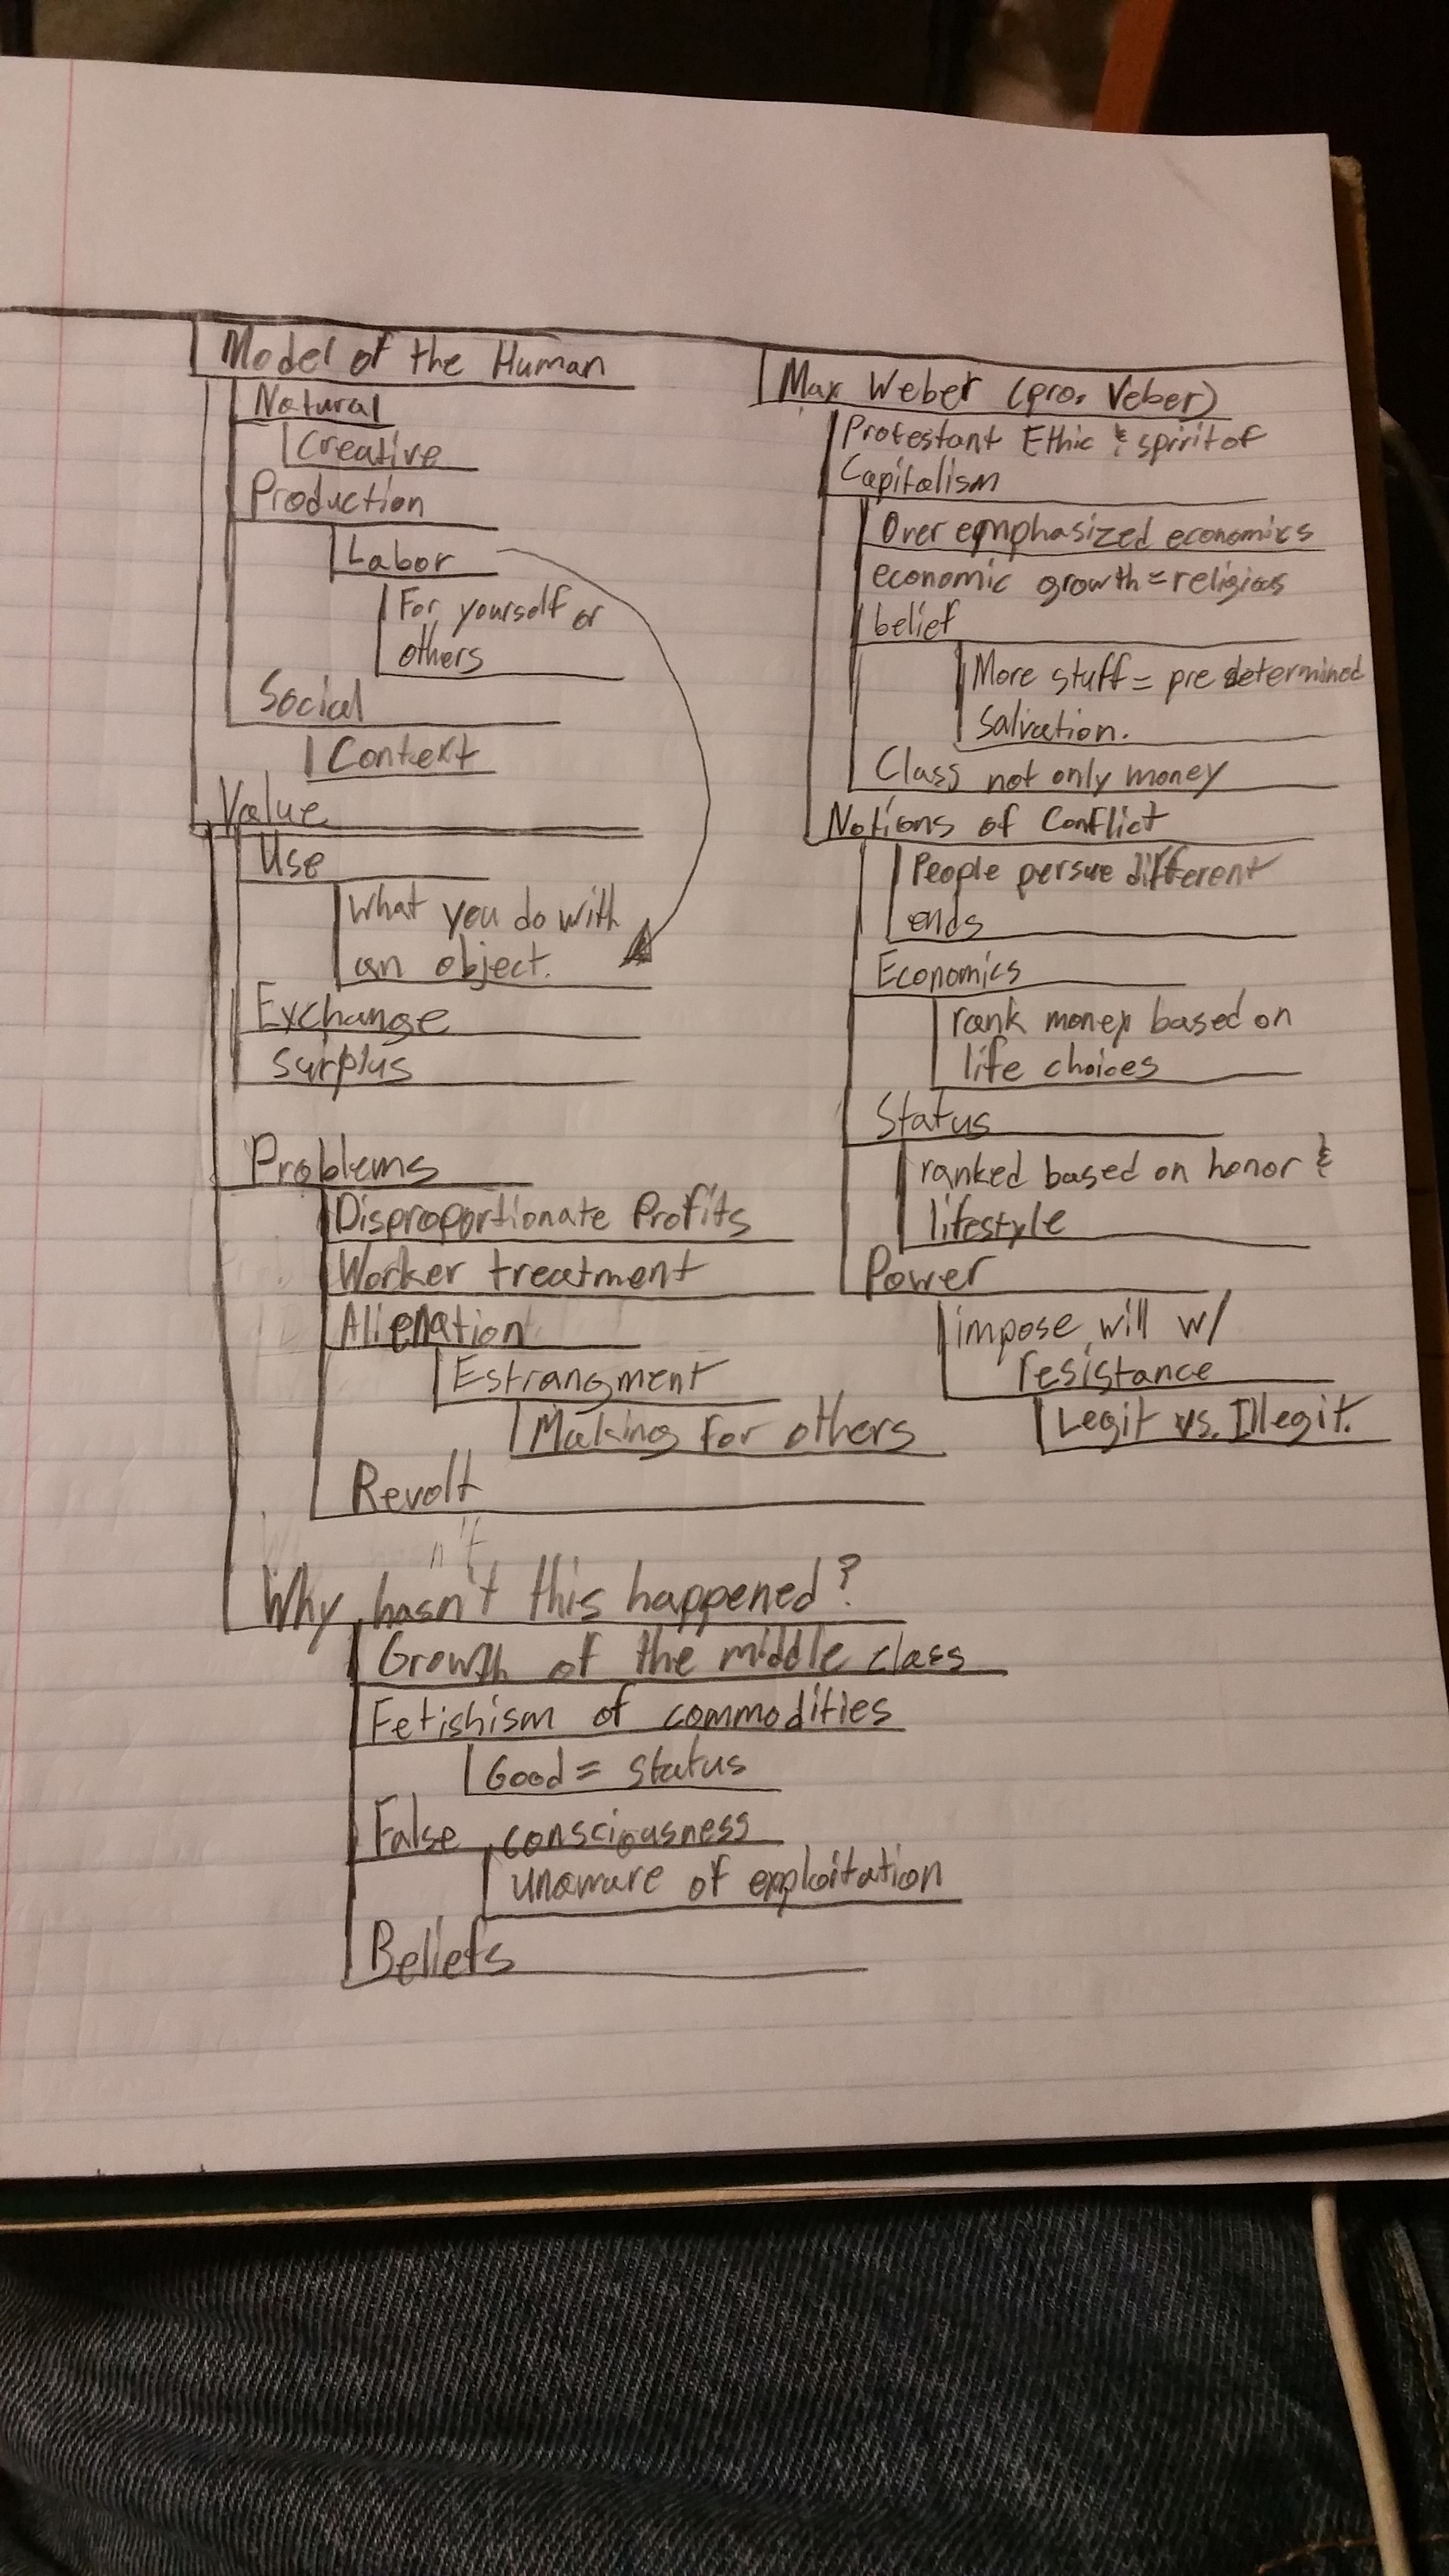 Model of the Human
Natural
Creative
Production
Labor
For yourself or
others
Social
Context
Value
Use
What you do with
an object.
Exchange
Surplus
Problems
Disproportionate Profits
Worker treatment
Alienation
Estrangment
Making for others
Revolt
Why hasn't this happened?
Growth of the middle class
Fetishism of commodities
Good = status
False consciousness
unaware of exploitation
Beliefs
Max Weber (pro. Veber)
Protestant Ethic & spirit of
Capitalism
Over emphasized economics
economic growth = religious
belief
More stuff = pre determined
salvation.
Class not only money
Notions of Conflict
People persue different
ends
Economics
rank money based on
life choices
Status
ranked based on honor &
lifestyle
Power
impose will w/
resistance
Legit vs. Illegit.